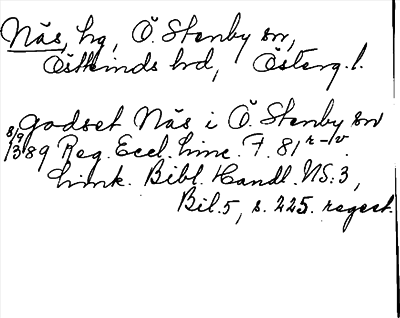 Näs, hg, Ö. Stenby sn,
Östkinds hd, Österg. l.
godset Näs i Ö. Stenby sn
8/9 1389 Reg. Eccl. Linc. F. 81 r-v.
Link. Bibl. Handl. NS:3,
Bil. 5, s. 225. regest.